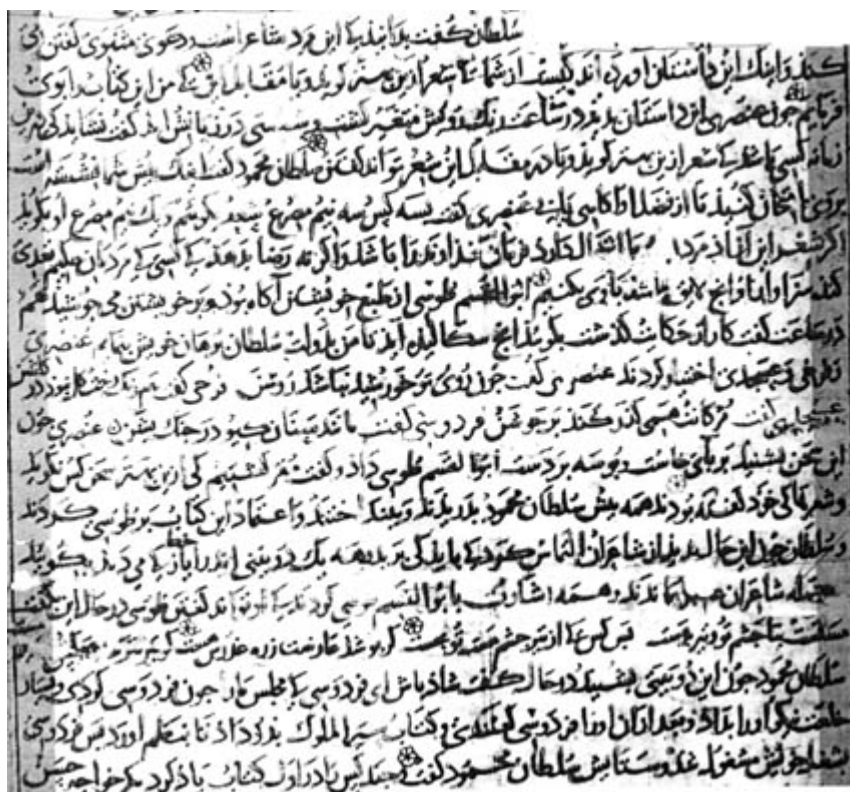 سلطان گفت بدانید که این مرد شاعر است و دعوی مثنوی گفتن می
کند و اینک این داستان آورده اند کیست از شما که شعر ازین بهتر گوید یا مقابل این که من این کتاب را بوی
فرمایم چون عنصری این داستان بدید در ساعت رنگ رویش متغیر گشت و سه سی در زبانش آمد گفت نشاید کی درین
زمانه کسی باشد که شعر ازین بهتر گوید و یا در مقابل این شعر تواند گفتن سلطان محمود گفت اینک پیش شما نشسته است
بروی امتحان کنید تا از فضل او آگاهی یابی عنصری گفت بسه کس سه نیم مصرع شعر گوئیم و یک نیم مصرع او بگوید
اگر شعر این آزاد مرد ما فرمان خداوند را باشد و اگر نه رضا بدهد که کسی که مردمان حکیم تعدی
کند سزا و آنچ لایق باشد با وی بکنیم ابوالقسم طوسی از طبع خویشتن آگاه بود و بر خویشتن می جوشید
در ساعت گفت کار از حکایت گذشت بگوئید آنچ سگالیده اید تا من بدولت سلطان برهان خویش بنمایم عنصری
و فرخی و عسجدی اختیار کردند عنصری گفت چون روی تو خورشید نباشد روشن فرخی گفت همرنگ رخت گل نبود در گلشن
عسجدی گفت مژگانت همی گذر کند بر جوشن فردوسی گفت مانند سنان گیو در جنگ پشن عنصری چون
این سخن بشنید بر پای خاست و بوسه بر دست ابوالقسم طوسی داد و گفت کی ازین بهتر سخن کس نگوید
و شعرهائی خود گفته بودند همه پیش سلطان محمود بدریدند و بیفکندند و اعتماد این کتاب بر طوسی کردند
و سلطان چون این حال بدید از شاعران التماس کرد که باید کی بر بدیهه یک دوبیتی اندر خط ایاز که می دمد بگویید
جمله شاعران اشارت با ابوالقسم طوسی کردند که او تواند گفتن طوسی در حال این گفت
مستست بتا چشم تو و تیر بدست بس کس که از تیر چشم مست تو بخست گر پوشد عارضت زره عذرش هست کز تیر بترسد همه کس
سلطان محمود چون این دوبیتی بشنید در حال گفت شاد باش ای فردوسی که مجلس ما را چون فردوس کردی و بسیار
خلعت نیکو او را بداد و بعد از آن او را فردوسی خواندندی و کتاب سیر الملوک بدو داد تا بنظم آورد پس فردوسی
بشغل خویش مشغول شد و ستایش سلطان محمود گفت و چند کس را در اول کتاب یاد کرد یکی خواجه حسن